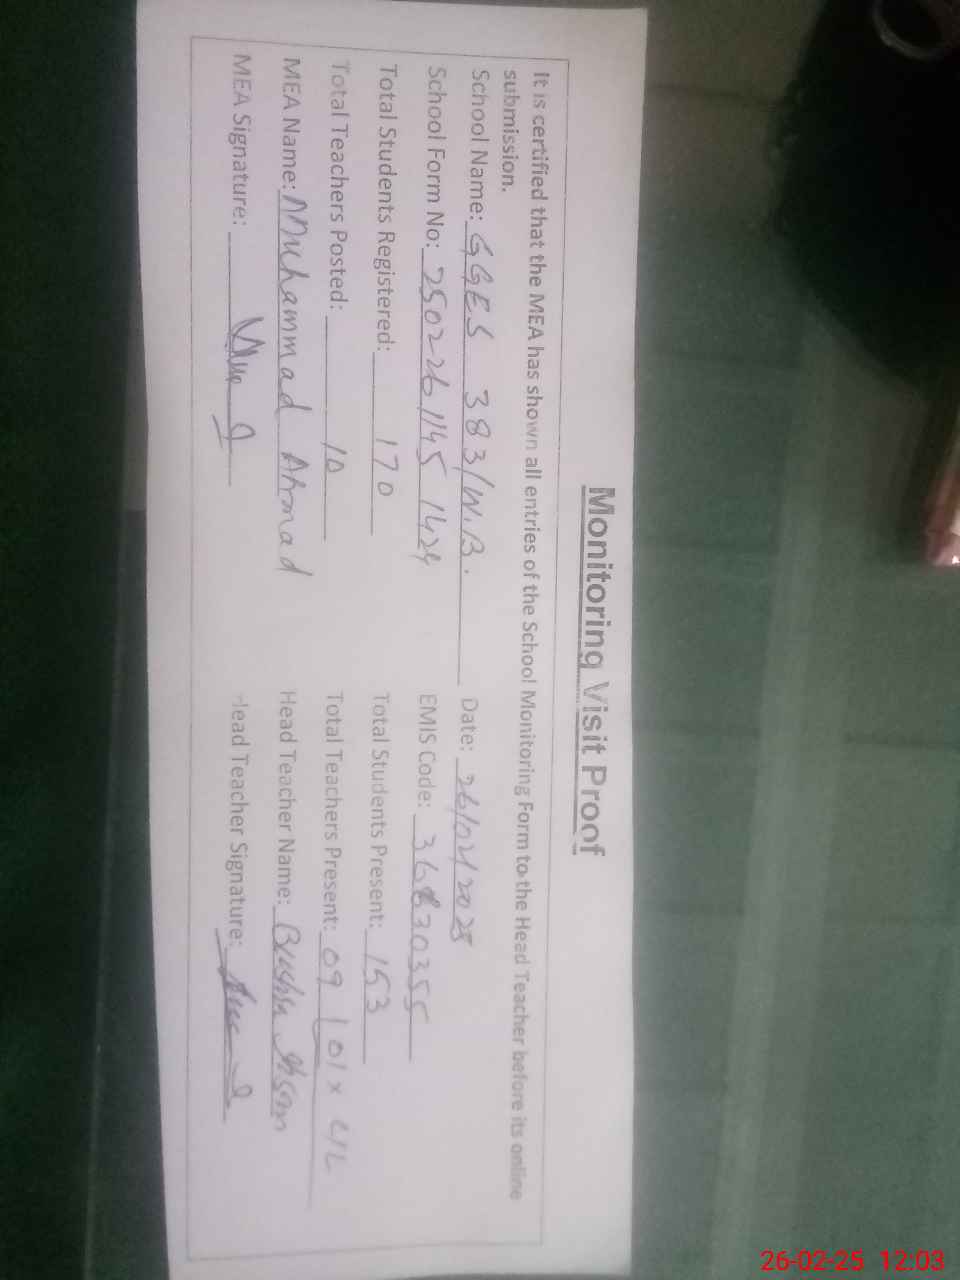 Monitoring Visit Proof
It is certified that the MEA has shown all entries of the School Monitoring Form to the Head Teacher before its online
submission.
School Name: GGES 383/W.B. Date: 26/02/2025
School Form No: 250226 1145 1424 EMIS Code: 36630355
Total Students Registered: 170 Total Students Present: 153
Total Teachers Posted: 10 Total Teachers Present: 09 (01 x C/L
MEA Name: Muhammad Ahmad Head Teacher Name: Bushra
MEA Signature: Head Teacher Signature:
26-02-25 12:03